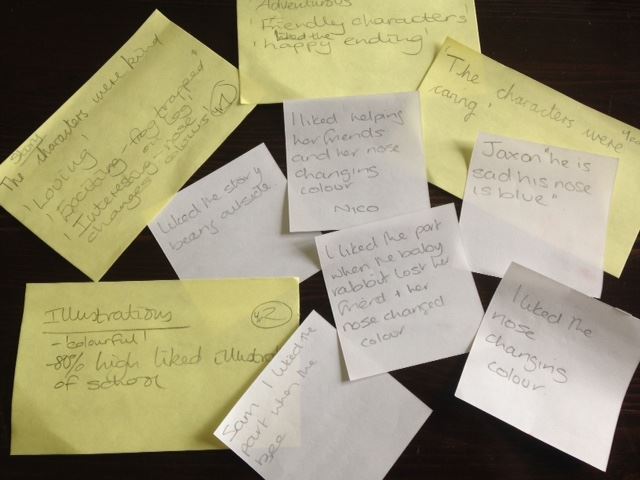 Adventurous
'Friendly characters'
'liked the
happy ending'
The characters were kind
'Loving'
'Exciting - frog trapped
'Interesting - nose
changes colours'
The characters were
caring'
I liked helping
her friends
and her nose
changing
colour
Nico
Jaxon "he is
sad his nose
is blue"
I liked the story
being outside.
I liked the part
when the baby
rabbit lost her
friend + her
nose changed
colour
I liked the
nose
changing
colour
Illustrations
Y2
- colourful!
-80% high liked illustrat
of school
Sam I liked the
part when the
bee